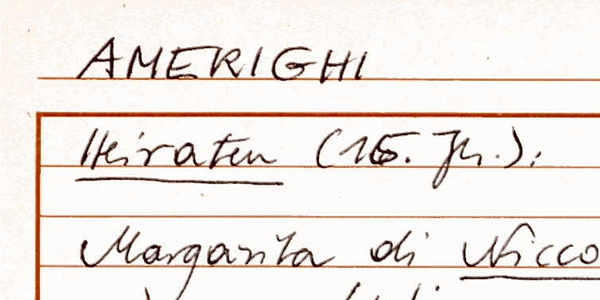 AMERIGHI
Heiraten (15. Jh.):
Margarita di Nicco